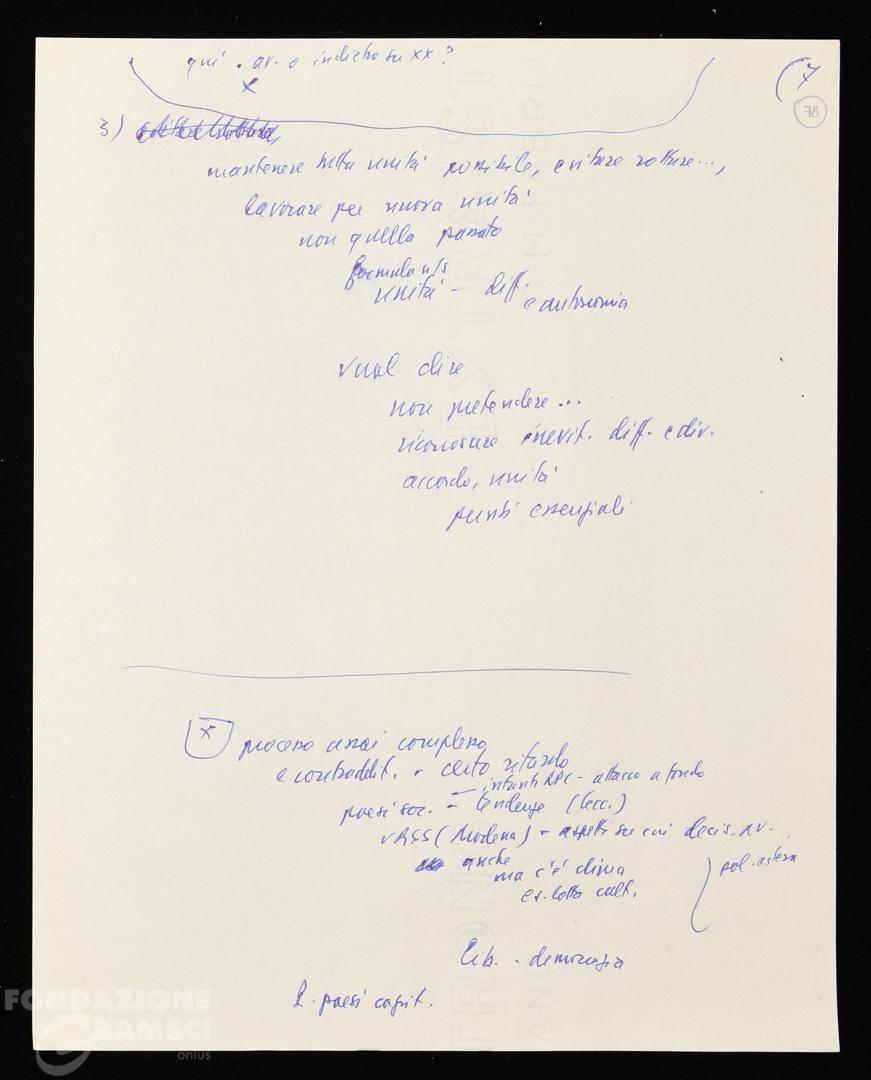 qui . av. o indietro su xx?
x
(7
78
3)
mantenere tutta unità possibile, evitare rotture...,
lavorare per nuova unità
non quella passato
formula n/s
unità - diff. e autonomia
vuol dire
non pretendere...
riconoscere inevit. diff. e div.
accordo, unità
punti essenziali
x processo assai complesso
e contraddit. - certo ritardo
- attacco a fondo
paesi soc. - tendenze (ecc.)
URSS (Modena) - aspetti su cui decis. av.
anche
ma c'è clima
es. lotta cult.
pol. estera
Lib. - democrazia
2. paesi capit.
FONDAZIONE
GRAMSCI
onlus